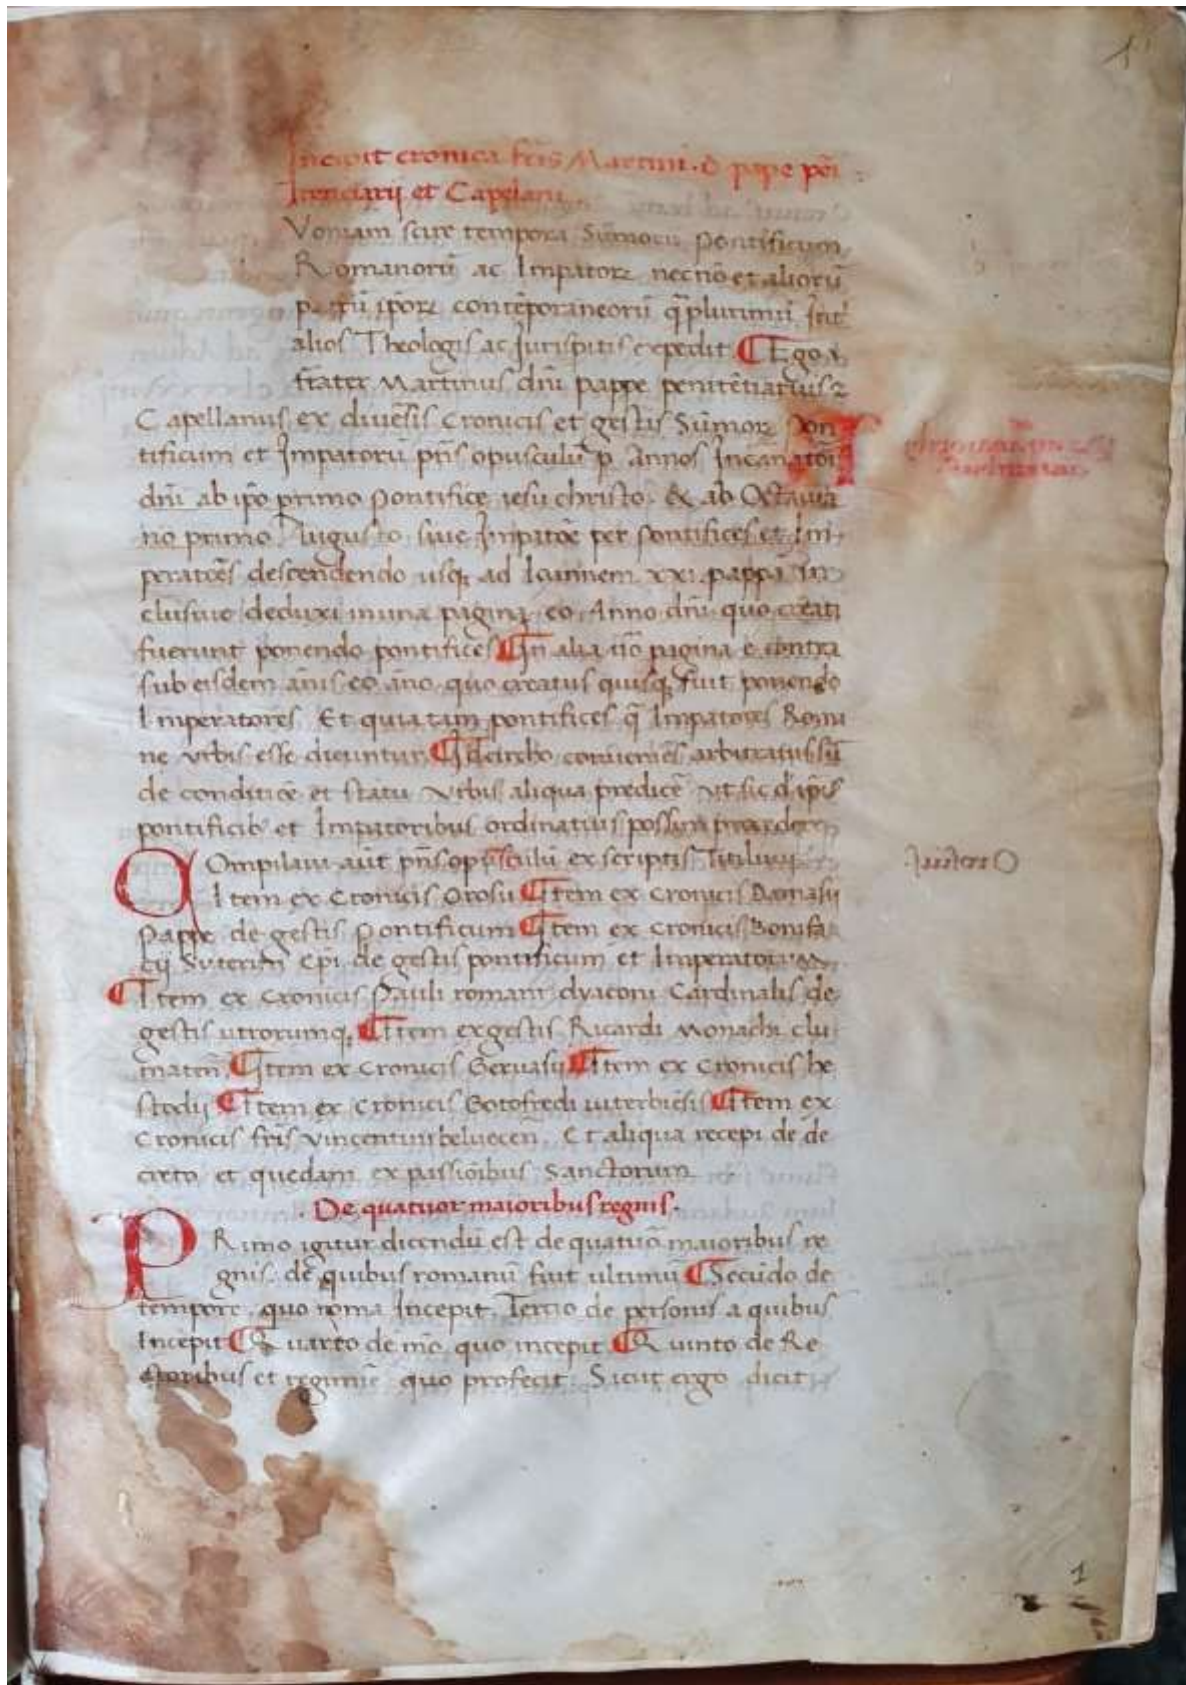 Incipit cronica fr̄is Martini. d̄. pape pēi
tenciarij et Capelani
Voniam scire tempora Sūmorū pontificum
Romanorū ac Impatorꝝ necnō et aliorū
ipōrꝝ contēporaneorū q̄plurimū
alios Theologis ac Jurispitis expedit ¶ Ego
frater Martinus dn̄i pappe penitētiarius ⁊
Capellanus ex diuēsis Cronicis et gestis Sūmorꝝ pon
tificum et Impatorū pn̄s opusculū p̱ Annos Incarnatōi
dn̄i ab ip̄o primo pontifice iesu christo. & ab Octauia
no primo Augusto siue Impatōe per pontifices et Im
peratoēs descendendo usqꝫ ad Ioannem xxi. pappā in
clusiue deduxi in una pagina eo Anno dn̄i quo creati
fuerunt ponendo pontifices ¶ In alia ūo pagina e contra
sub eisdem ānis eo āno quo creatus quisqꝫ fuit ponendo
Imperatores. Et quia tam pontifices q̄ Impatores Roma
ne vrbis esse dicuntur ¶ Idcircho conueniēs arbitratus sū
de conditiōe et statu vrbis aliqua predicē vt sic d̄ ip̄is
pontificib' et Impatoribus ordinatius possim procedere
Ompilaui aūt pn̄s opusculū ex scriptis Titiliuij
Item ex Cronicis Orosii ¶ Item ex Cronicis Damasii
Pappe de gestis pontificum ¶ Item ex cronicis Bonifa
cij Suterim̄ Ep̄i de gestis pontificum et Imperatorum
¶ Item ex Cronicis Pauli romani dyaconi Cardinalis de
gestis utrorumqꝫ ¶ Item ex gestis Ricardi Monachi clu
niaceñ ¶ Item ex Cronicis Geruasij ¶ Item ex Cronicis he
stodij ¶ Item ex Cronicis Gotofredi uiterbiēsis ¶ Item ex
Cronicis fr̄is vincentini belueceñ. Et aliqua recepi de de
creto et quedam ex passiōibus Sanctorum
De quatuor maioribus regnis.
PRimo igitur dicendū est de quatuoᵣ maioribus re
gnis. de quibus romanū fuit ultimū ¶ Secūdo de
tempore quo roma Incepit. Tertio de personis a quibus
Incepit ¶ Quarto de mō quo incepit ¶ Quinto de Re
ctoribus et regimīe quo profecit. Sicut ergo dicit
1